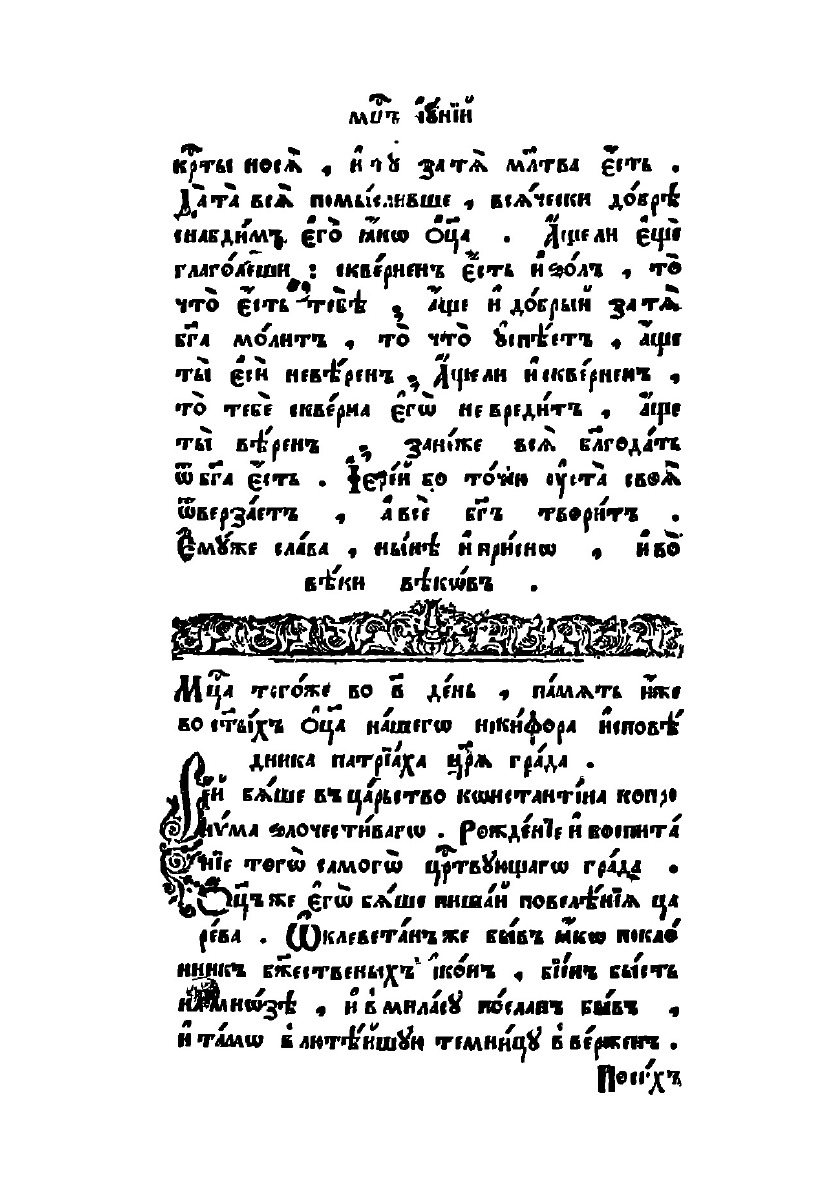 мцⷭ҇ъ і҆ꙋ́нїй
крⷭ҇ты нося̀ , и҆ за тѧ̀ мл҃тва є҆́сть .
Да та̀ всѧ̑ помы́сливше , всѧ́чески до́брѣ
снабди́мъ є҆го̀ ꙗ҆́кѡ ѻ҆ц҃а̀ . А҆́ще ли є҆щѐ
глаго́леши : скве́рненъ є҆́сть и҆ ѕо́лъ , то̀
что̀ є҆́сть тебѣ̀ ; а҆́ще и҆ до́брый за тѧ̀
бг҃а мо́литъ , то̀ что̀ ᲂу҆спѣ́етъ , а҆́ще
ты̀ є҆сѝ невѣ́ренъ ; А҆́ще ли и҆ скве́рненъ ,
то̀ тебѐ скве́рна є҆гѡ̀ не вреди́тъ , а҆́ще
ты̀ вѣ́ренъ ; зане́же всѧ̀ блг҃ода́ть
ѿ бг҃а є҆́сть . І҆ере́й бо то́чїю ᲂу҆ста̀ своѧ̑
ѿверза́етъ , а҆ всѐ бг҃ъ твори́тъ .
Є҆мꙋ́же сла́ва , ны́нѣ и҆ при́снѡ , и҆ во
вѣ́ки вѣкѡ́въ .
Мцⷭ҇а тогѡ́же во в҃ де́нь , па́мѧть и҆́же
во ст҃ы́хъ ѻ҆ц҃а̀ на́шегѡ ники́фора и҆сповѣ́
дника патрїа́ха цр҃ѧ гра́да .
Се́й бѧ́ше въ ца́рство кѡнстанті́на копро
ни́ма ѕлочести́вагѡ . Рожде́нїе и҆ воспита́
нїе тогѡ̀ самогѡ̀ црⷭ҇твꙋющагѡ гра́да .
Ѻ҆ц҃ъ же є҆гѡ̀ бѧ́ше пиша́й повелѣ́нїѧ ца
ре́ва . Ѡ҆клевета́нъ же бы́въ ꙗ҆́кѡ покло́
нникъ бжⷭ҇ественыхъ і҆ко́нъ , бїе́нъ бы́сть
на мно́ѕѣ , и҆ в мила́сꙋ по́сланъ бы́въ ,
и҆ та́мѡ в лютѣ́йшꙋю темни́цꙋ вве́рженъ .
По си́хъ